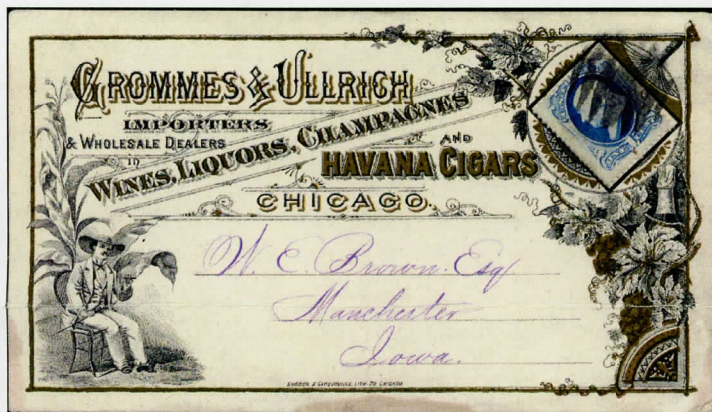 GROMMES & ULLRICH
IMPORTERS
& WHOLESALE DEALERS
in
WINES, LIQUORS, CHAMPAGNES
AND
HAVANA CIGARS
CHICAGO.
W. E. Brown. Esq
Manchester
Iowa.